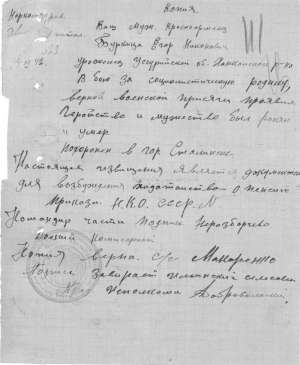 Копия
Наркомздрав
Ваш муж Красноармеец
Бурбица Егор Кононович
163
Уроженец Уссурийской об. Ханкайский р-на
В бою за социалистическую родину,
верной воинской присяги проявив
Геройство и мужество был ранен
и умер
Похоронен в гор Сталинске
Настоящая извещения является документом
для возбуждения ходатайства о пенсии
Приказ Н.К.О. СССР. №
Командир части Подпись Неразборчево
военный комиссариат
Копия верна. с/с Макаренко
Подпись Заверяет сельсовет
исполкома Добровольский